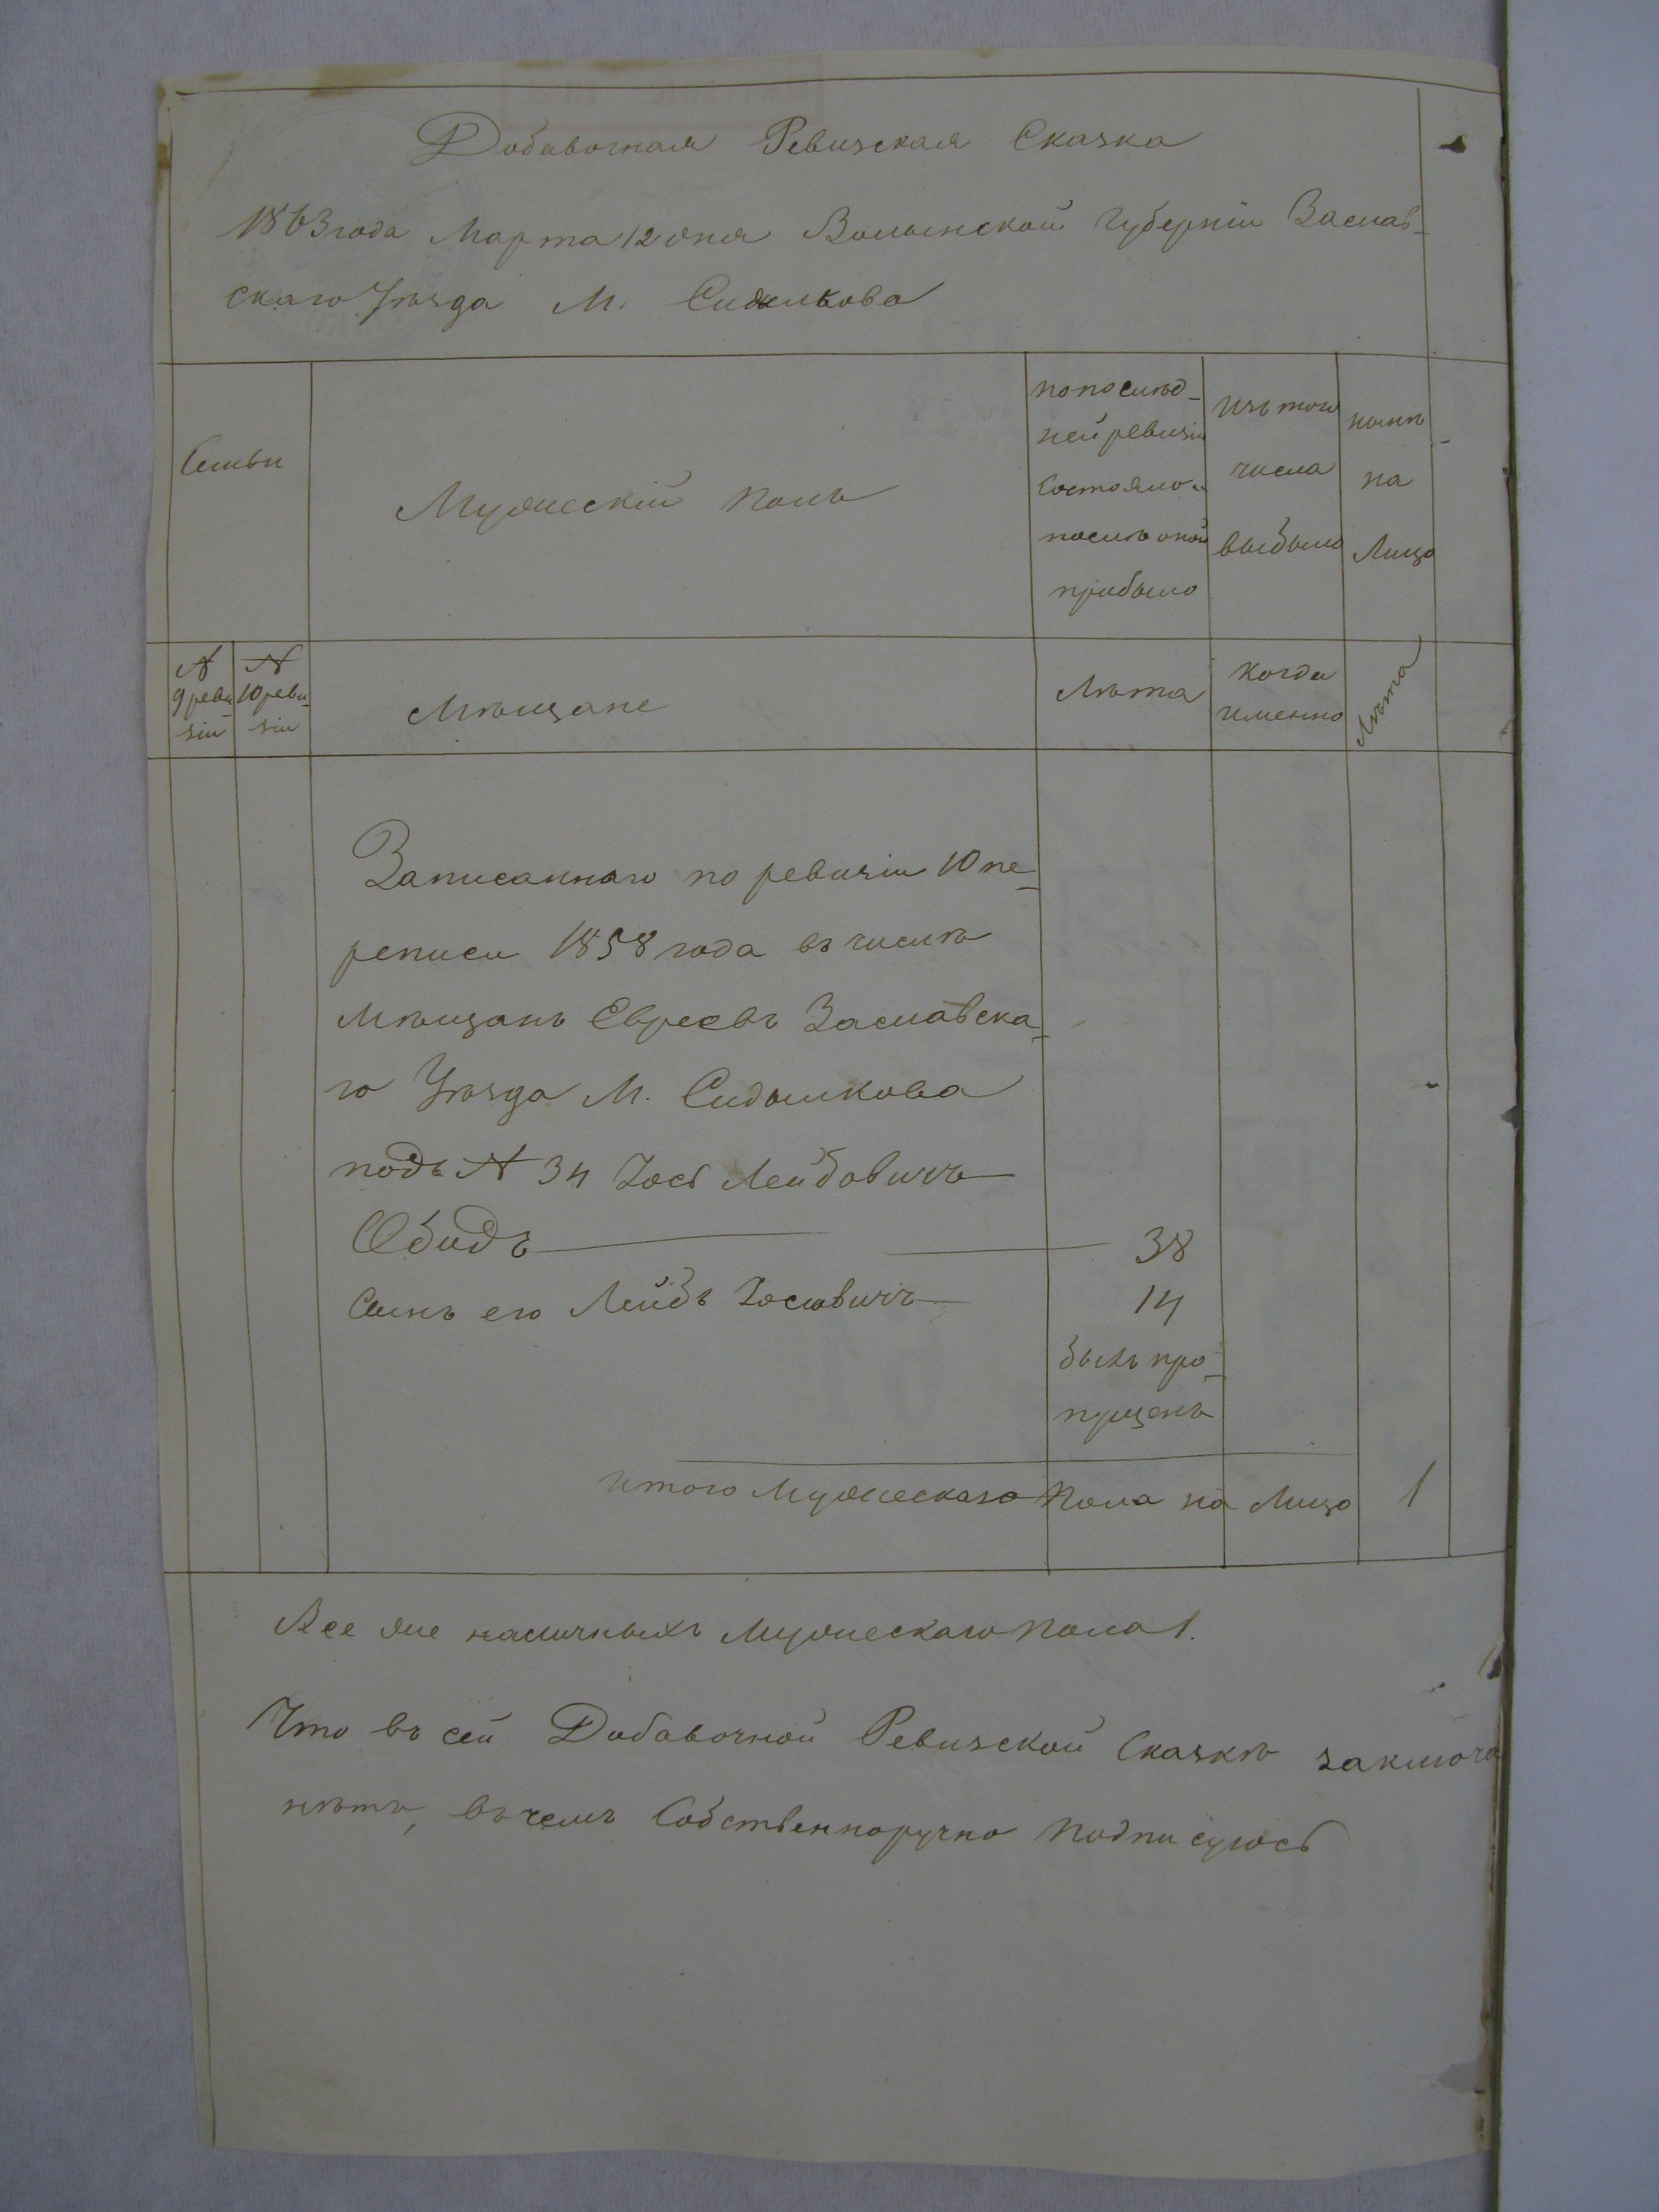 Добавочная Ревизская Сказка
1863 года Марта 12 дня Волынской Губерніи Заслав-
скаго Уѣзда М. Судилкова
Семьи
Мужескій полъ
по послѣд-
ней ревизіи
состояло и
послѣ оной
прибыло
изъ того
числа
выбыло
нынѣ
на
Лицо
№
9 реви-
зіи
№
10 реви-
зіи
Мѣщане
Лѣта
Когда
именно
Лѣта
Записаннаго по ревизіи 10 пе-
реписи 1858 года въ числѣ
Мѣщанъ Евреевъ Заславска-
го Уѣзда М. Судылкова
подъ № 34 Іось Лейбовичъ
Обидъ 38
Сынъ его Лейбъ Іосіовичъ 14
былъ про-
пущенъ
итого Мужескаго Пола на Лицо 1
Все же наличныхъ Мужескаго Пола 1.
Что въ сей Добавочной Ревизской Сказкѣ заключа
нѣтъ, въ чемъ Собственноручно Подписуюсь